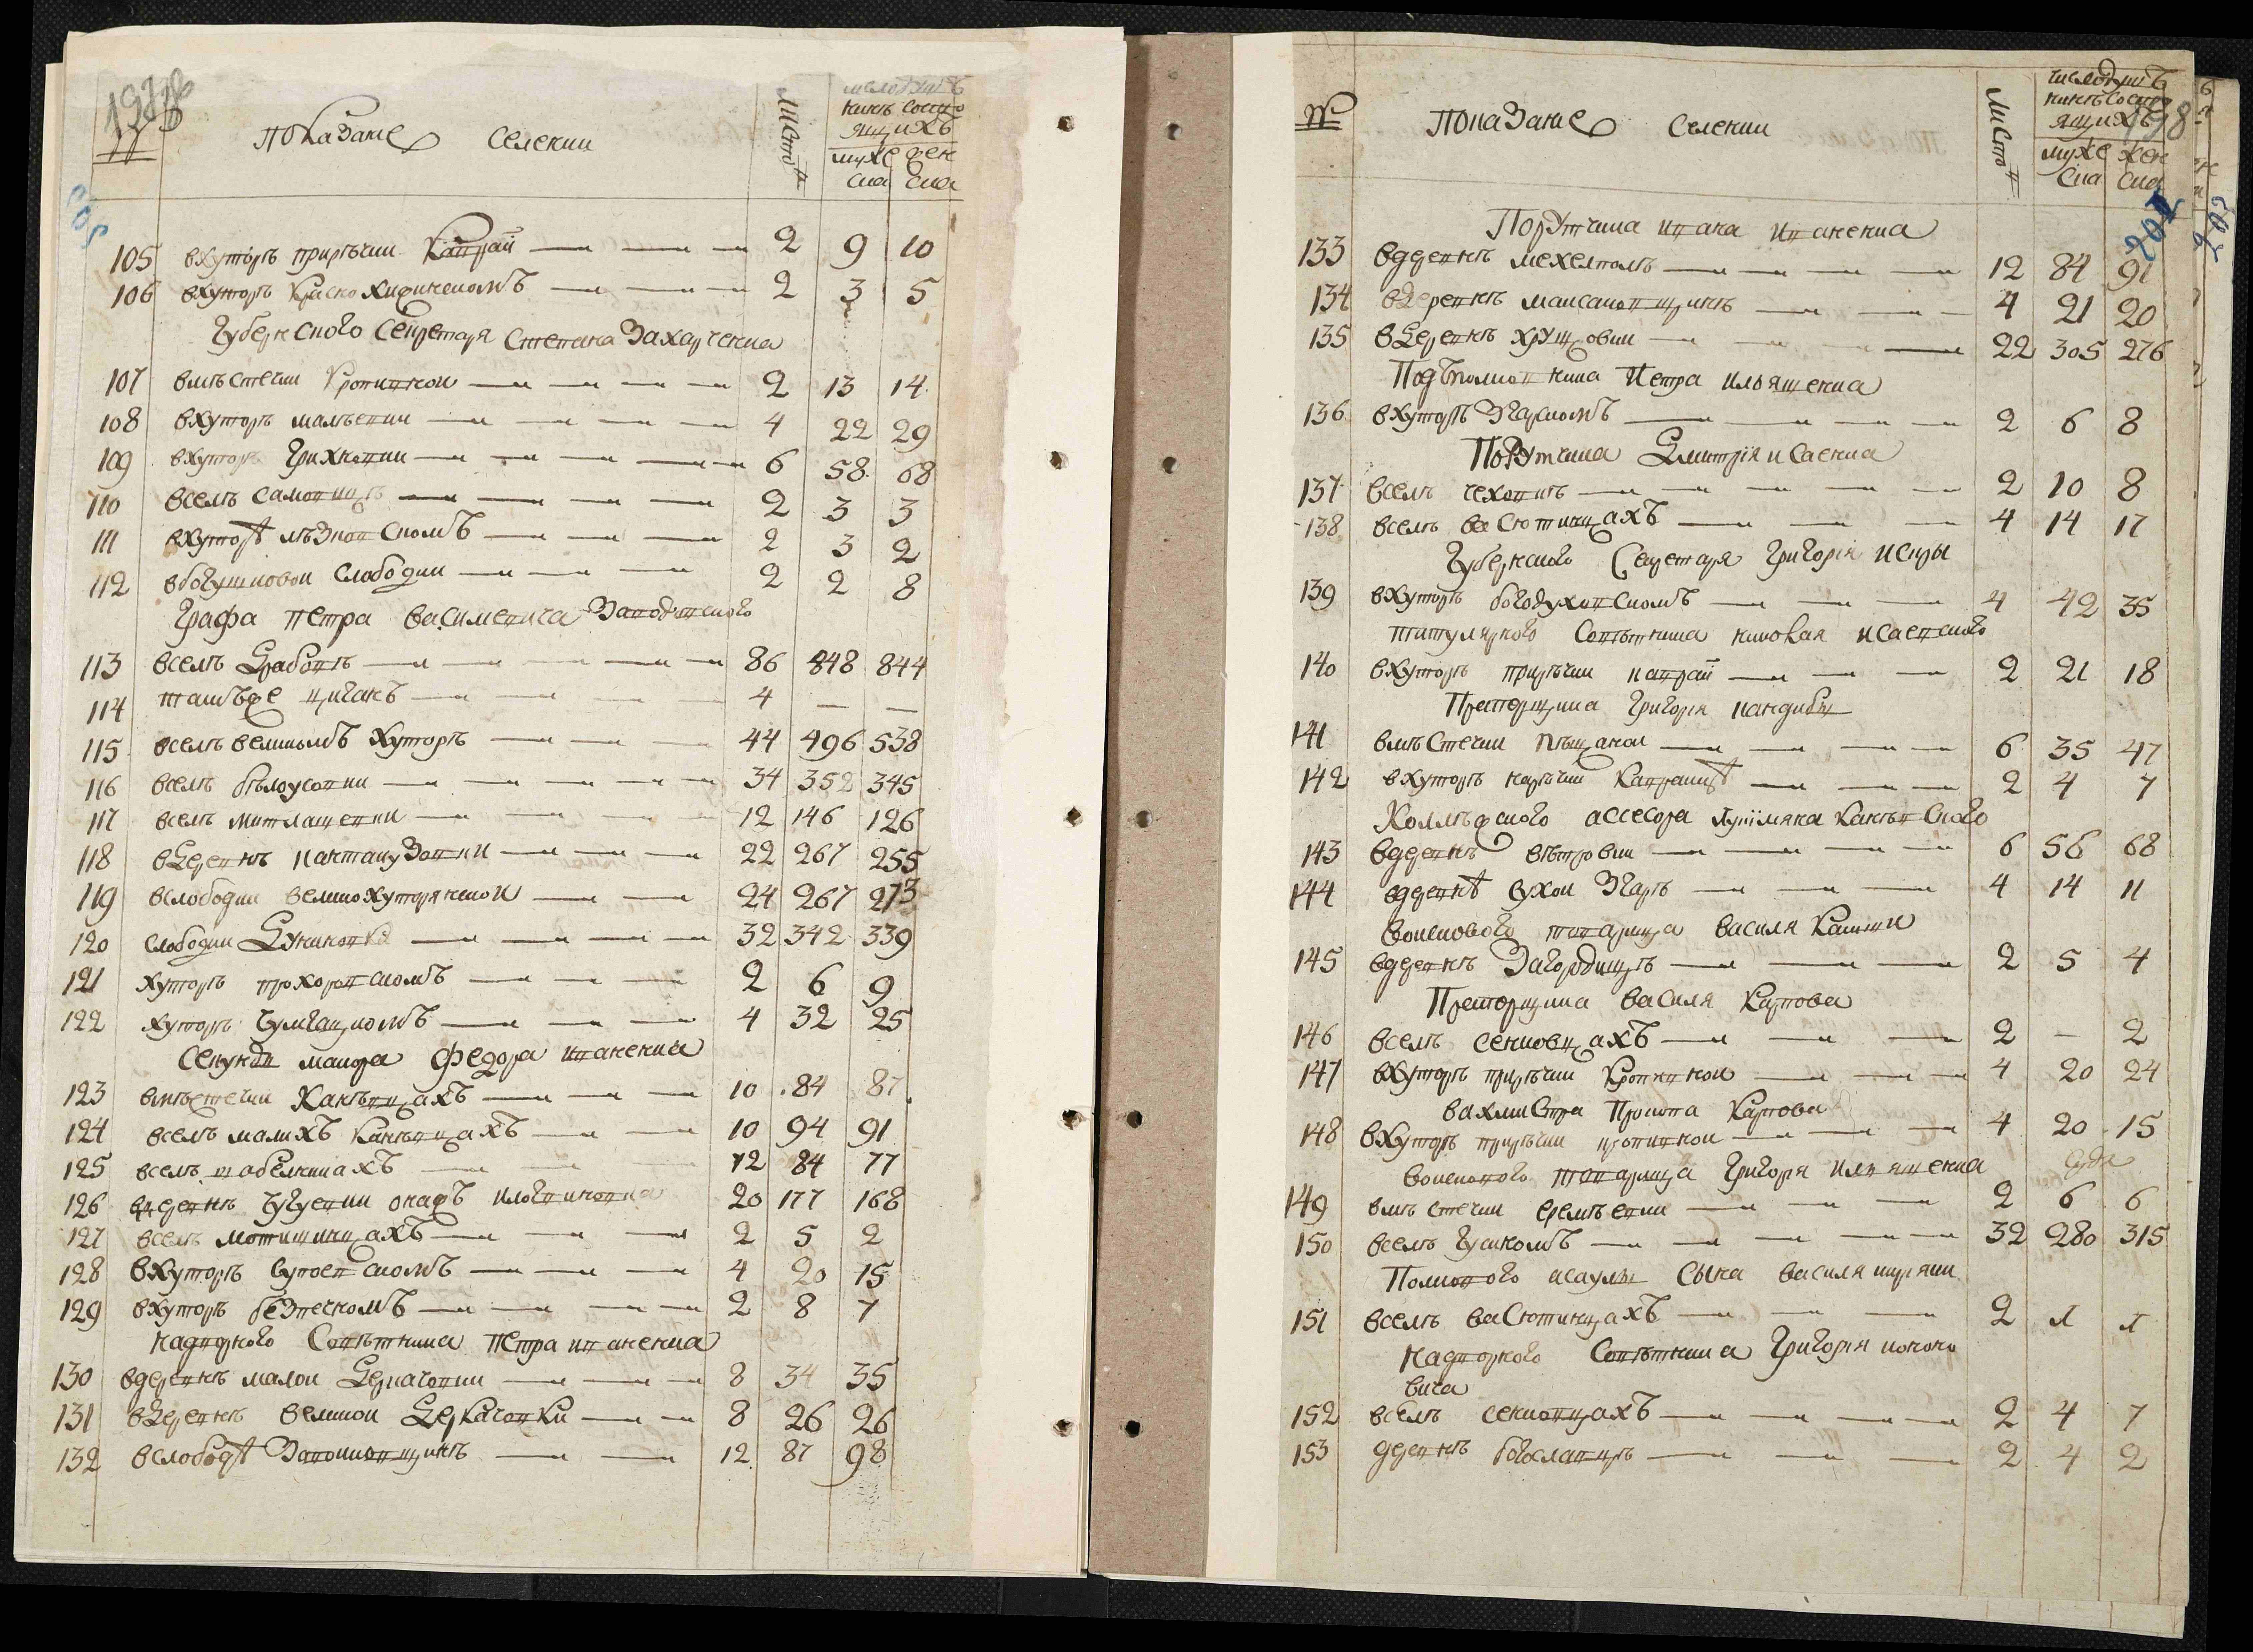 №
показание селении
листов
число душъ
в нихъ состо
ящихъ
муже жен
ска ска
105 в хуторѣ при речки Каврай 2 9 10
106 в хуторѣ Краснохижинскомъ 2 3 5
Губернского Секретаря Степана Захарченка
107 в местечки Кропивнои 2 13 14
108 в хуторѣ малѣевки 4 22 29
109 в хуторѣ Грихновки 6 58 68
110 в селѣ самовицѣ 2 3 3
111 в хуторѣ лѣзновскомъ 2 3 2
112 в богушковои слободки 2 2 8
Графа петра василиевича Заводовского
113 в селѣ Драбовѣ 86 848 844
114 тамъже циганъ 4 — —
115 в селѣ великомъ хуторѣ 44 496 538
116 в селѣ бѣлоусовки 34 352 345
117 в селѣ митлашевки 12 146 126
118 в деревнѣ кантакузовки 22 267 255
119 в слободки великохуторянскои 24 267 273
120 слободки Дуниновка 32 342 339
121 хуторѣ прохоровскомъ 2 6 9
122 хуторѣ Чумгацкомъ 4 32 25
Секундъ маиора Федора иваненка
123 в мѣстечки Канѣвцахъ 10 84 87
124 в селѣ малихъ Канѣвцахъ 10 94 91
125 в селѣ шабелникахъ 12 84 77
126 в деревнѣ Чугуевки онажъ и логвиновка 20 177 168
127 в селѣ мотишинцахъ 2 5 2
128 в хуторѣ супоевскомъ 4 20 15
129 в хуторѣ безпечномъ 2 8 7
надворного Совѣтника петра иваненка
130 в деревнѣ малои Деркачовки 8 34 35
131 в деревнѣ великои Деркачовки 8 26 26
132 в слободѣ Заполковщинѣ 12 87 98
№
показание селении
листов
число душъ
в нихъ состо
ящихъ
муже жен
ска ска
198
Порутчика ивана иваненка
133 в деревнѣ мехелполѣ 12 84 91
134 в деревнѣ максановщинѣ 4 21 20
135 в деревнѣ хрущовки 22 305 276
Подъполковника Петра ильяшенка
136 в хуторѣ Згарскомъ 2 6 8
Порутчика Дмитрія исаенка
137 в селѣ чеховкѣ 2 10 8
138 в селѣ васютинцахъ 4 14 17
Губернского Секретаря Григорія искры
139 в хуторѣ богодуховскомъ 4 42 35
титулярного Совѣтника николая исаевского
140 в хуторѣ при речки каврай 2 21 18
Прапорщика Григория кандибы
141 в мѣстечки пѣщанои 6 35 47
142 в хуторѣ на рѣчки Каврайцѣ 2 4 7
Коллѣжского ассесора лукияна Канѣвского
143 в деревнѣ вѣтровки 6 56 68
144 в деревнѣ сухои Згарѣ 4 14 11
Воискового товарища василя Кашки
145 в деревнѣ Загородищѣ 2 5 4
Прапорщика василя Карпова
146 в селѣ сенковцахъ 2 — 2
147 в хуторѣ при рѣчки Кропивнои 4 20 24
вахмистра Прокопа Карпова
148 в хуторѣ при рѣчки кропивнои 4 20 15
Воискового товарища Григоря ильяшенка
149 в мѣстечки еремѣевки 2 6 6
150 в селѣ Гусиномъ 32 280 315
Полкового асаулы сына василя ширяя
151 в селѣ васютинцахъ 2 л л
надворного Совѣтника Григорія кононо
вича
152 в селѣ сенковцахъ 2 4 7
153 деревнѣ богославцѣ 2 4 2